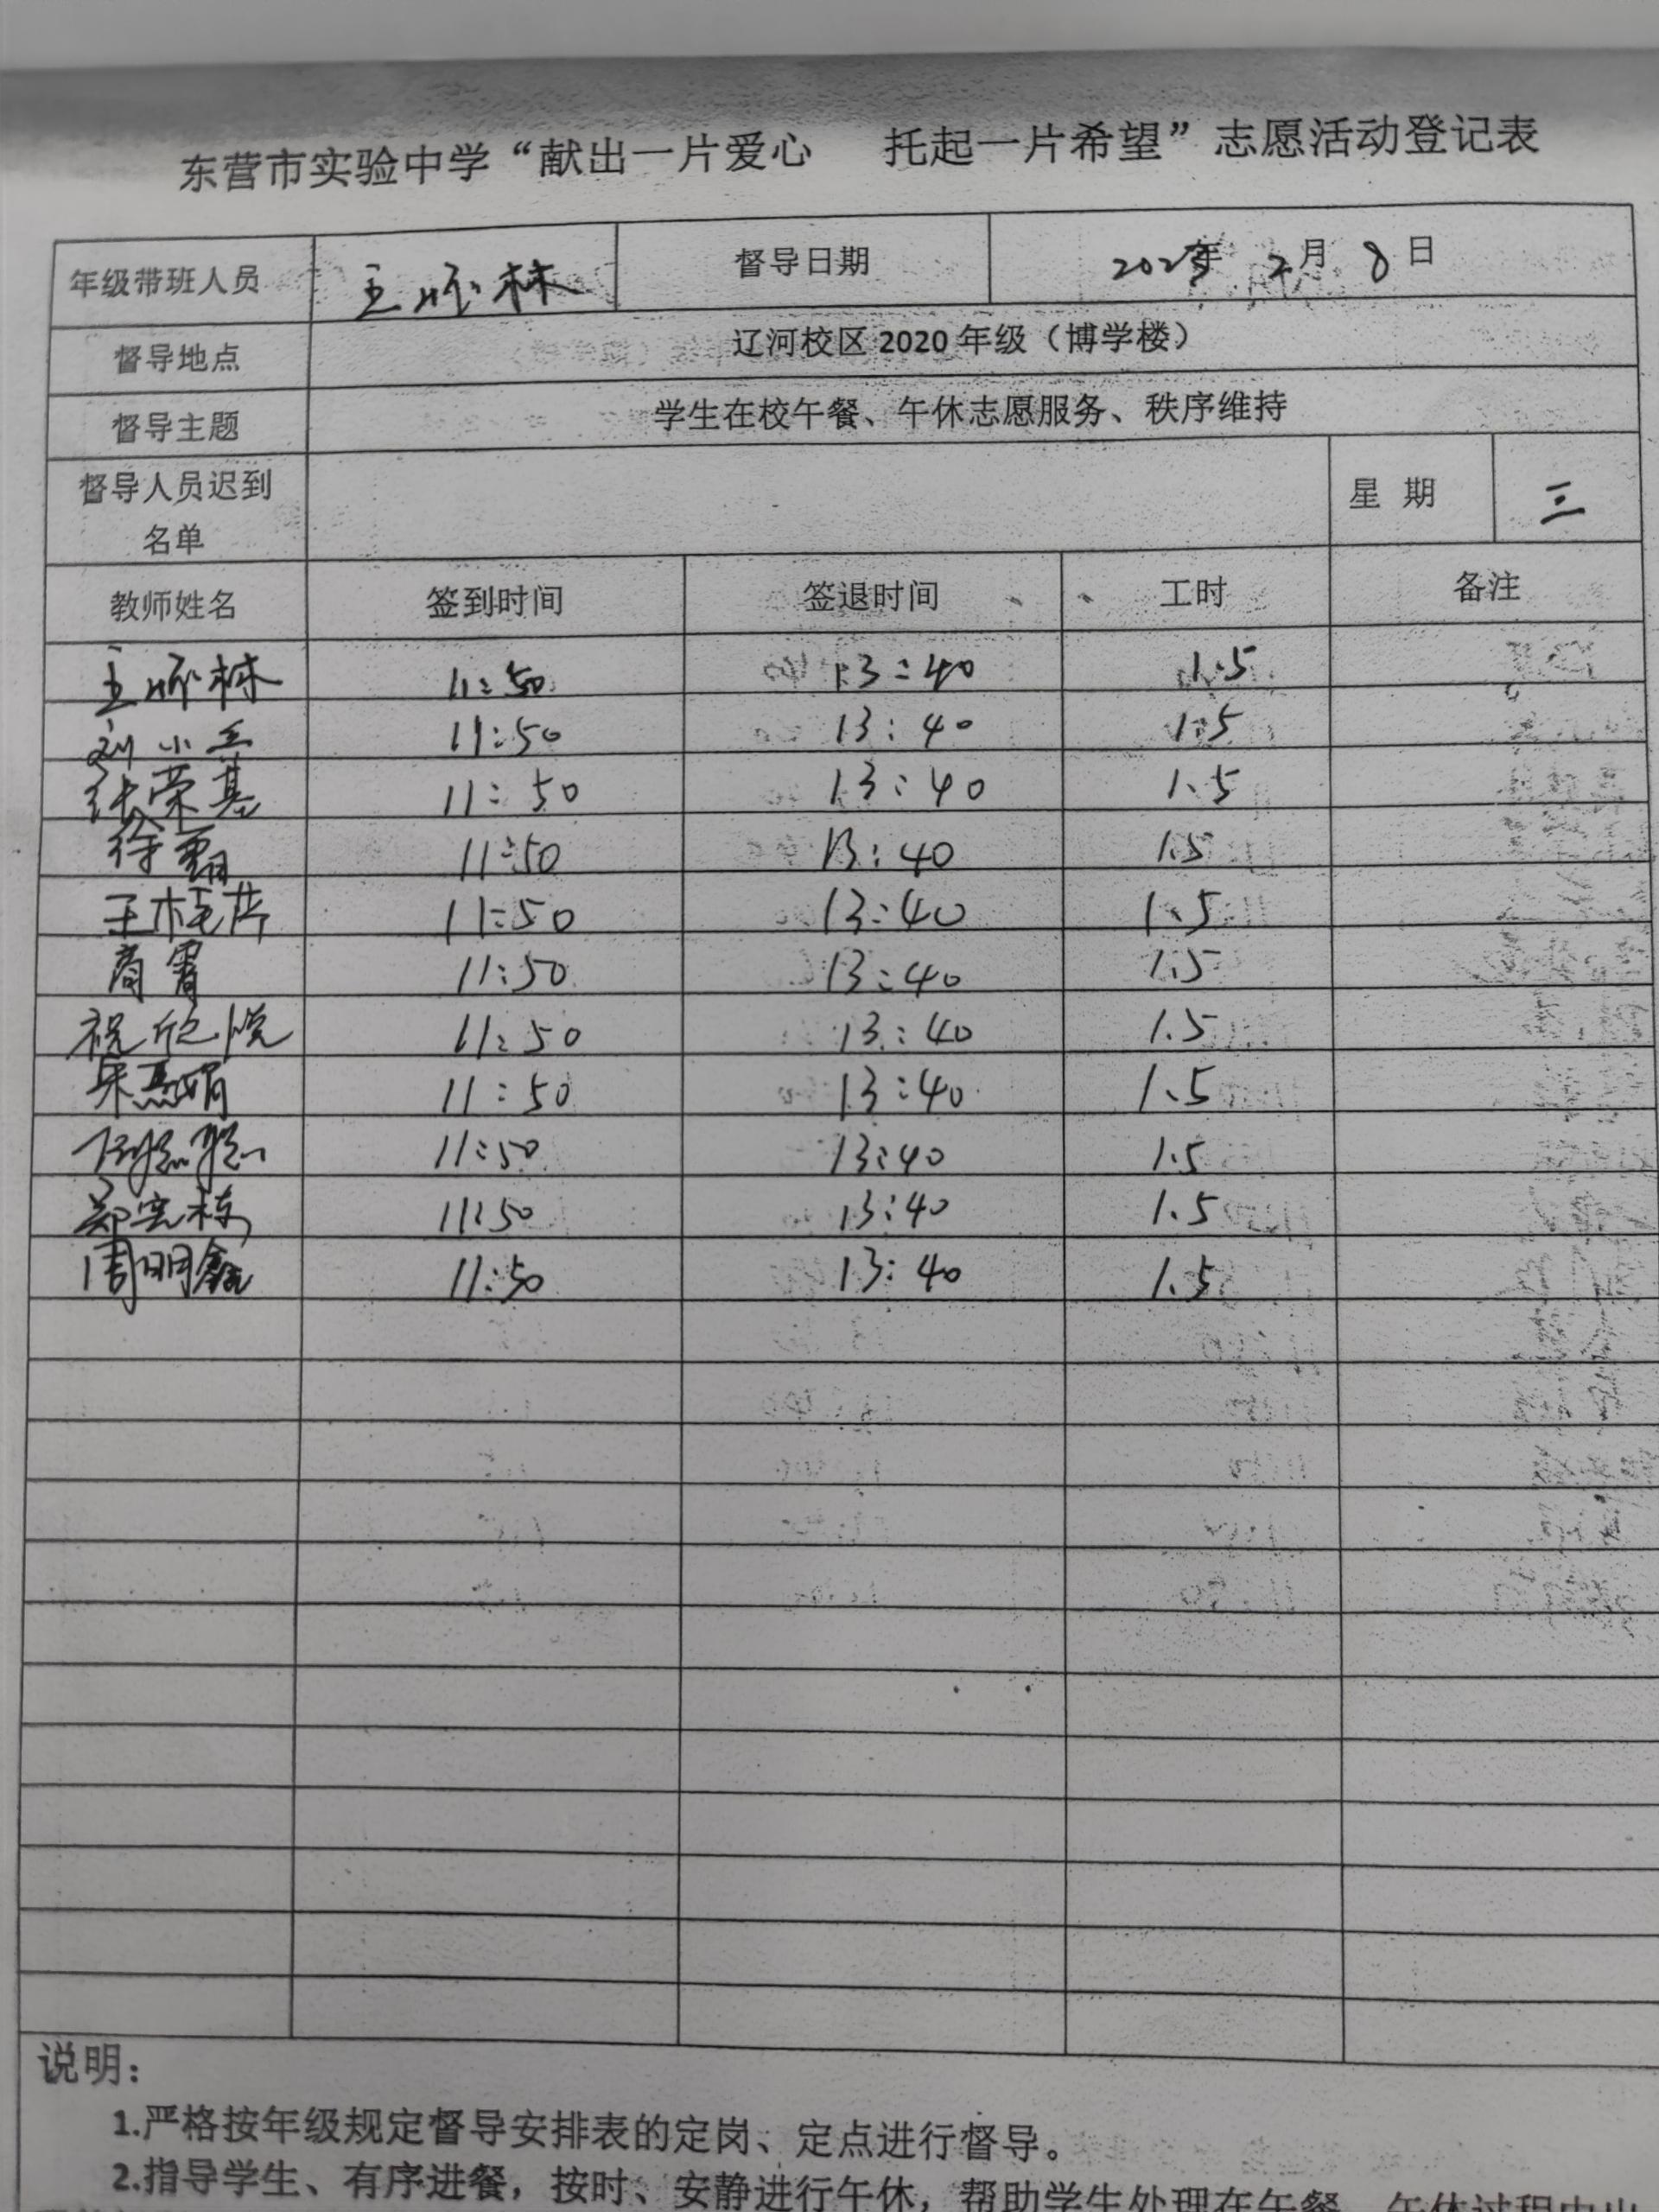 东营市实验中学“献出一片爱心 托起一片希望”志愿活动登记表
年级带班人员 督导日期 2023年 2月 8日
督导地点 辽河校区 2020 年级（博学楼）
督导主题 学生在校午餐、午休志愿服务、秩序维持
督导人员迟到 星 期 三
名单
教师姓名 签到时间 签退时间 工时 备注
11:50 13:40 1.5
刘小兵 11:50 13:40 1.5
张荣基 11:50 13:40 1.5
徐 11:50 13:40 1.5
王桂芹 11:50 13:40 1.5
商霄 11:50 13:40 1.5
祝欣悦 11:50 13:40 1.5
宋燕娟 11:50 13:40 1.5
11:50 13:40 1.5
郑宪栋 11:50 13:40 1.5
周明鑫 11:50 13:40 1.5
说明：
1.严格按年级规定督导安排表的定岗、定点进行督导。
2.指导学生、有序进餐，按时、安静进行午休，帮助学生处理在午餐、午休过程中出